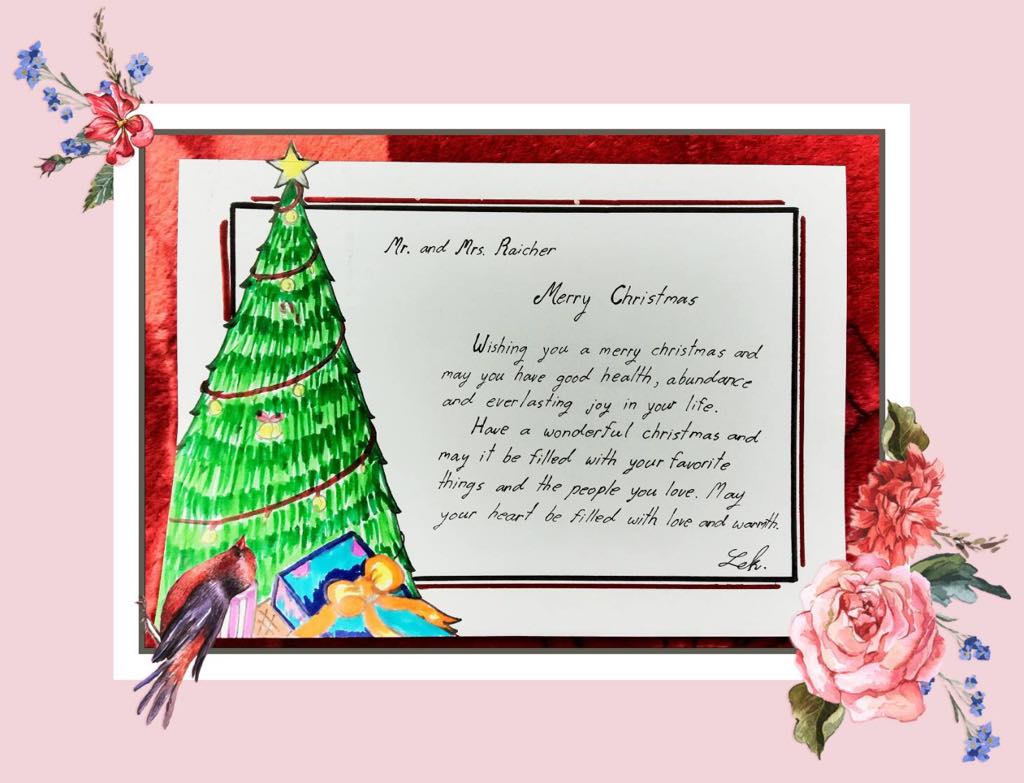 Mr. and Mrs. Raicher
Merry Christmas
Wishing you a merry christmas and
may you have good health, abundance
and everlasting joy in your life.
Have a wonderful christmas and
may it be filled with your favorite
things and the people you love. May
your heart be filled with love and warmth.
Lek.